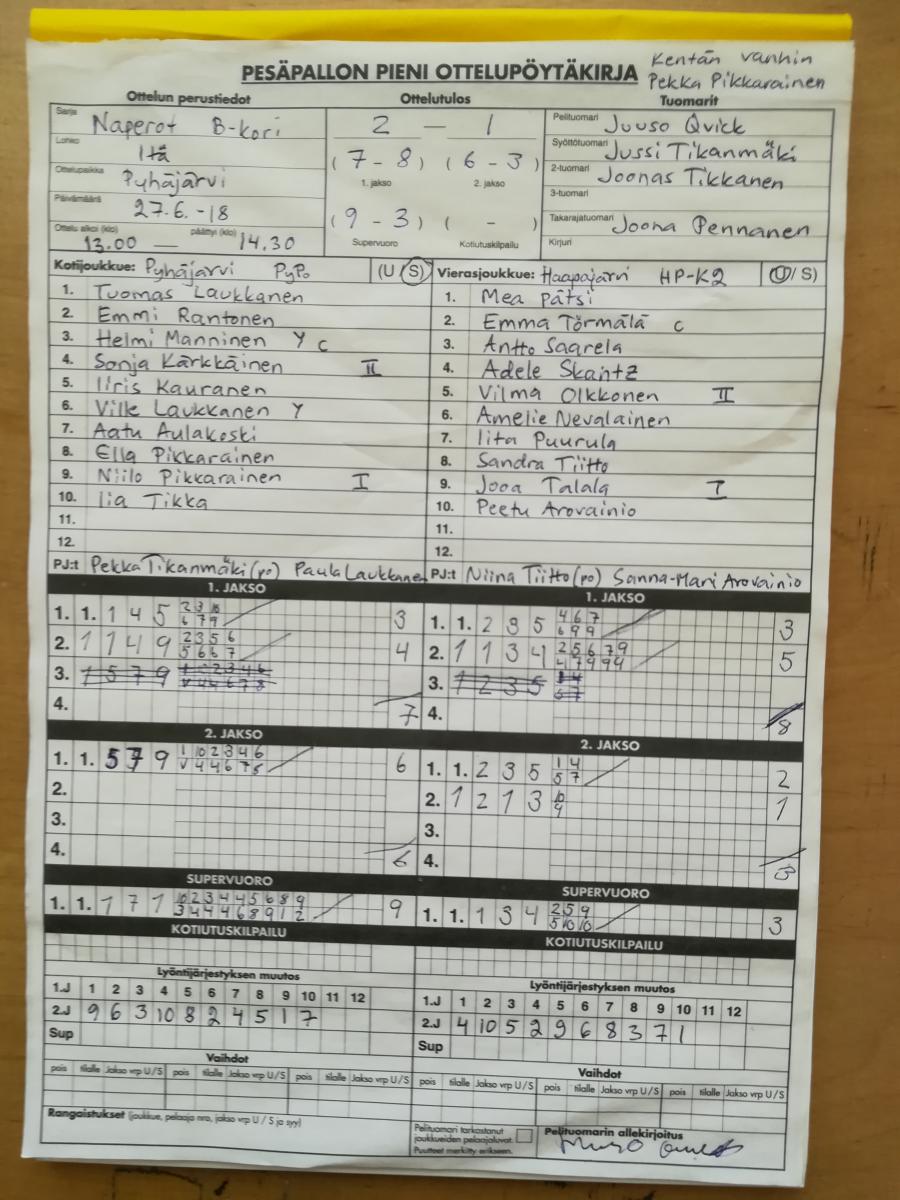 Kentän vanhin
PESÄPALLON PIENI OTTELUPÖYTÄKIRJA Pekka Pikkarainen
Ottelun perustiedot Ottelutulos Tuomarit
Sarja Naperot B-kori 2 - 1 Pelituomari Juuso Qvick
Lohko Itä (7 - 8) (6 - 3) Syöttötuomari Jussi Tikanmäki
Ottelupaikka Pyhäjärvi 1. jakso 2. jakso 2-tuomari Joonas Tikkanen
Päivämäärä 27.6.-18 (9 - 3) ( - ) 3-tuomari
Ottelu alkoi (klo) 13.00 — päättyi (klo) 14.30 Supervuoro Kotiutuskilpailu Takarajatuomari Joona Pennanen
Kirjuri
Kotijoukkue: Pyhäjärvi PyPo (U S) Vierasjoukkue: Haapajärvi HP-K2 (U/S)
1. Tuomas Laukkanen 1. Mea Pätsi
2. Emmi Rantonen 2. Emma Törmälä C
3. Helmi Manninen Y C 3. Antto Saarela
4. Sonja Kärkkäinen II 4. Adele Skantz
5. Iiris Kauranen 5. Vilma Olkkonen II
6. Ville Laukkanen Y 6. Amelie Nevalainen
7. Aatu Aulakoski 7. Iita Puurula
8. Ella Pikkarainen 8. Sandra Tiitto
9. Niilo Pikkarainen I 9. Jooa Talala I
10. Iia Tikka 10. Peetu Arovainio
11. 11.
12. 12.
PJ:t Pekka Tikanmäki (po) Paula Laukkanen PJ:t Niina Tiitto (po) Sanna-Mari Arovainio
1. JAKSO 1. JAKSO
1. 1. 1 4 5 2 3 10 6 7 9 3 1. 1. 2 3 5 4 6 7 6 9 9 3
2. 1 1 4 9 2 3 5 6 5 6 6 7 4 2. 1 1 3 4 2 5 6 7 9 4 7 9 9 4 5
3. 1 5 7 9 3. 1 2 3 5 1 4 5 7
4. 7 4. 8
2. JAKSO 2. JAKSO
1. 1. 5 7 9 1 10 2 3 4 6 6 1. 1. 2 3 5 1 4 5 7 2
2. 2. 1 2 1 3 10 9 1
3. 3.
4. 6 4. 3
SUPERVUORO SUPERVUORO
1. 1. 1 7 1 10 2 3 4 4 5 6 8 9 3 4 4 4 6 8 9 1 2 9 1. 1. 1 3 4 2 5 9 5 10 10 3
KOTIUTUSKILPAILU KOTIUTUSKILPAILU
Lyöntijärjestyksen muutos Lyöntijärjestyksen muutos
1.J 1 2 3 4 5 6 7 8 9 10 11 12 1.J 1 2 3 4 5 6 7 8 9 10 11 12
2.J 9 6 3 10 8 2 4 5 1 7 2.J 4 10 5 2 9 6 8 3 7 1
Sup Sup
Vaihdot Vaihdot
pois tilalle Jakso vrp U/S pois tilalle Jakso vrp U/S pois tilalle Jakso vrp U/S pois tilalle Jakso vrp U/S pois tilalle Jakso vrp U/S pois tilalle Jakso vrp U/S
Rangaistukset (joukkue, pelaaja nro, jakso vrp U / S ja syy)
Pelituomari tarkastanut joukkueiden pelaajaluvat. Puutteet merkitty erikseen. Pelituomarin allekirjoitus